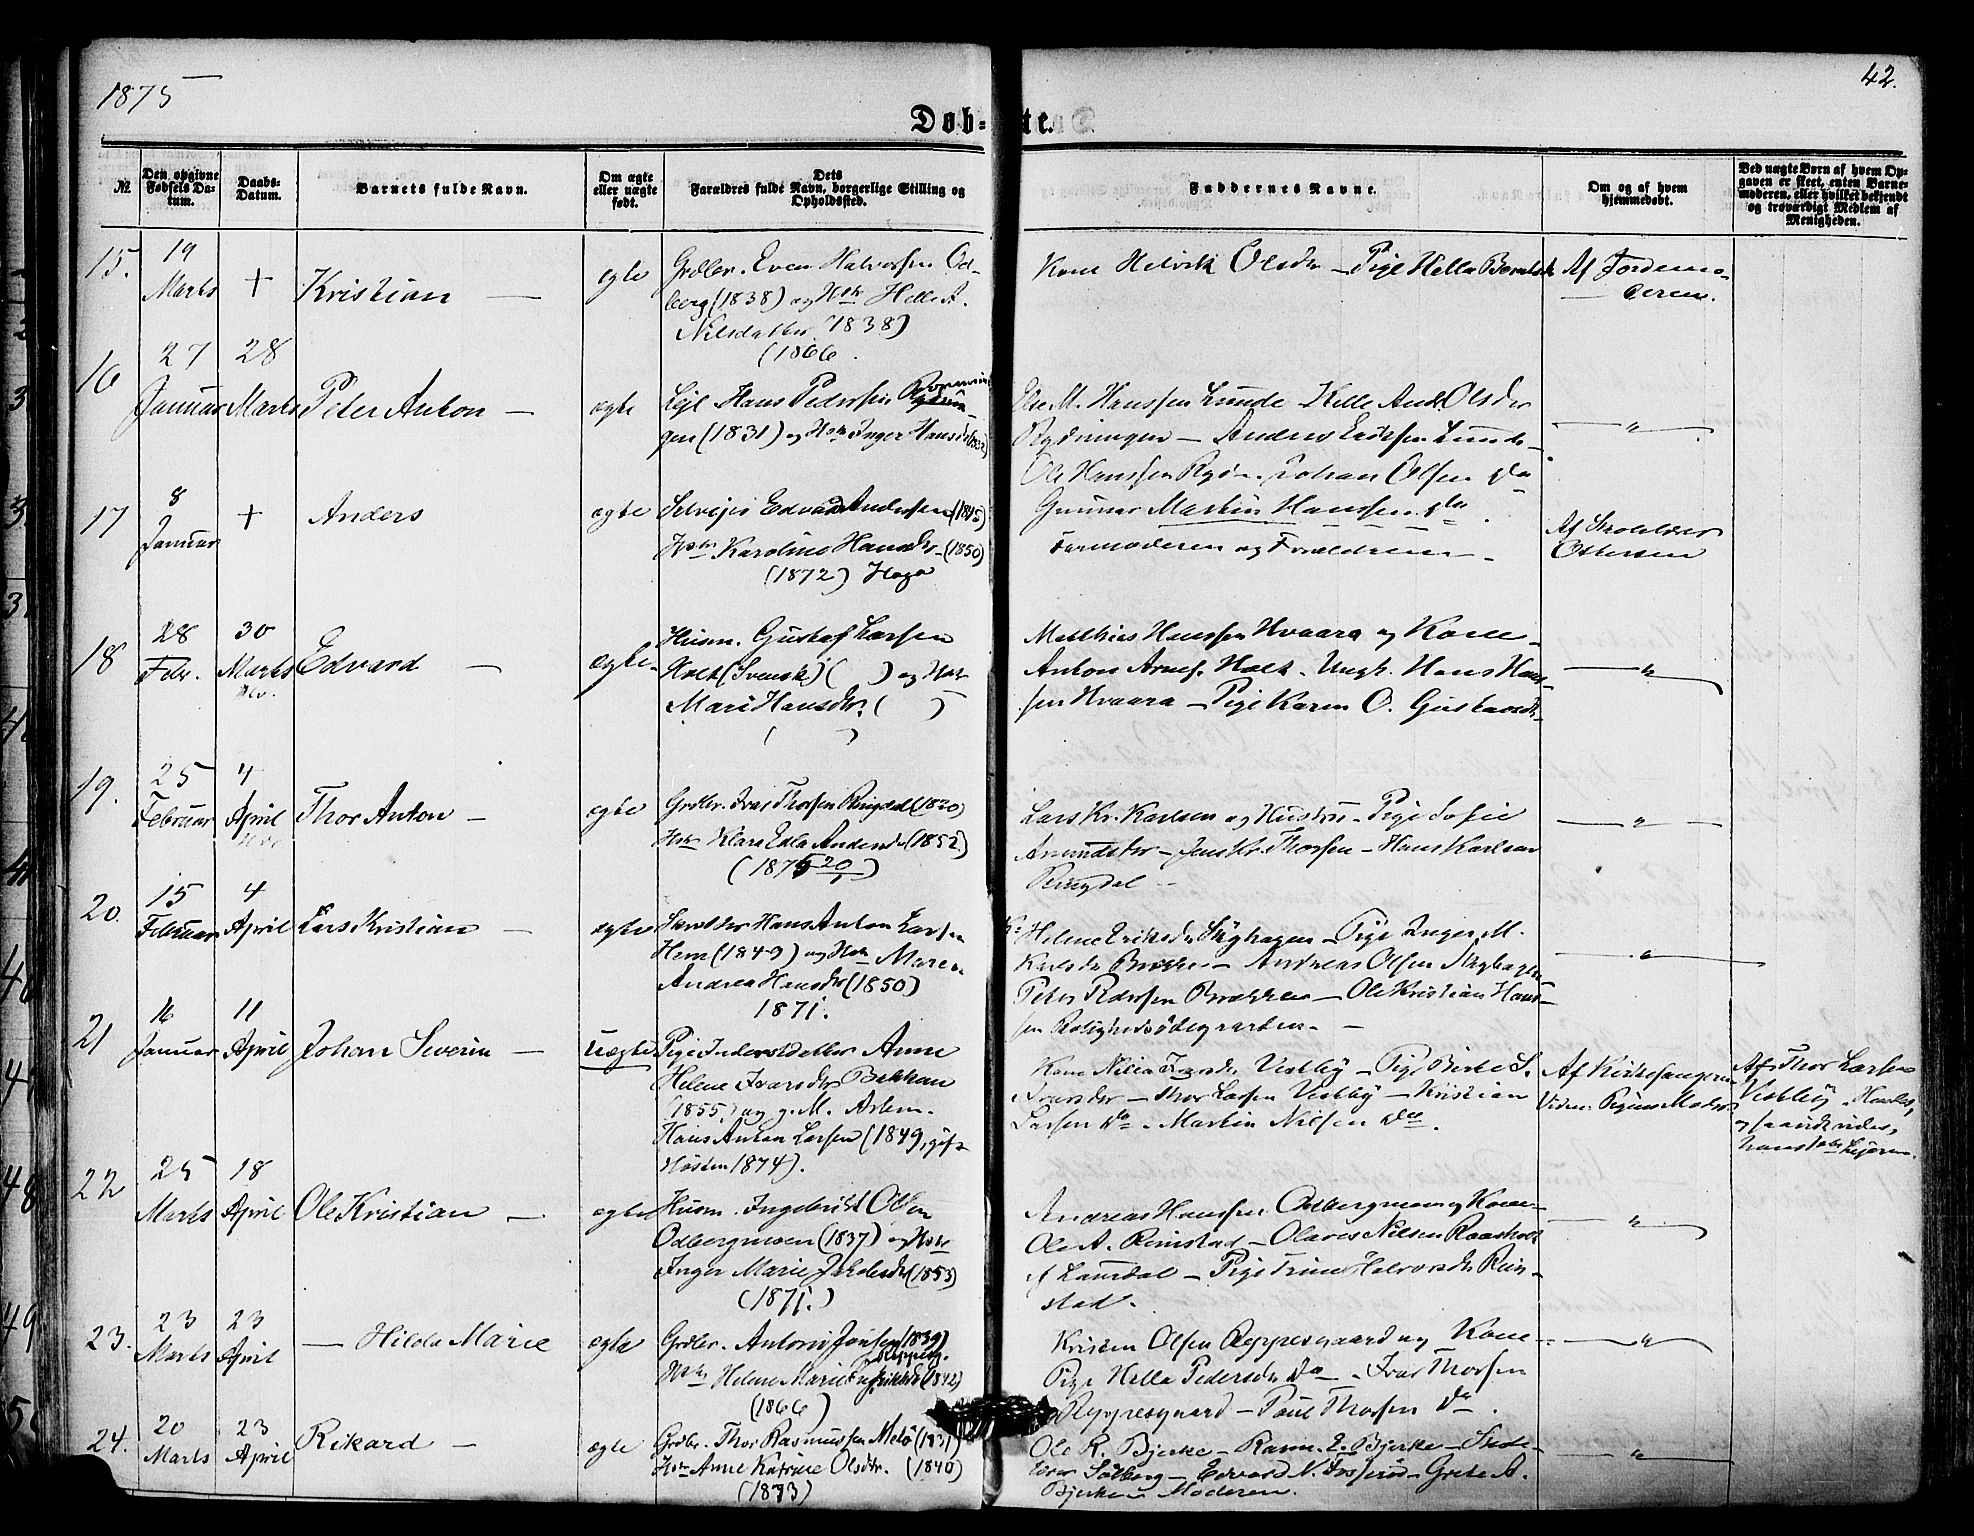 1875
42.
Døb-te.
№
Den opgivne Fødsels Datum.
Daabs-Datum.
Barnets fulde Navn.
Om ægte eller uægte født.
Dets Forældres fulde Navn, borgerlige Stilling og Opholdssted.
Faddernes Navne.
Om og af hvem hjemmedøbt.
Ved uægte Børn af hvem Opgaven er skeet, enten Barnemoderen, eller hvilket bekjendt og troværdigt Medlem af Menigheden.
15. 19 Marts + Kristian — ægte
Grdbr. Even Halvorsen Od-
berg (1838) og Hstr Helle A.
Nilsdatter 1838)
(1866.
Kone Helvik Olsdr — Pige Hella
Af Jordemo-
deren.
16 27 Januar 28 Marts Peter Anton — ægte
Lejl Hans Pedersen
gen (1831) og Hstr Inger Hansdr
M. Hanssen Lunde Helle And. Olsdr
Rydningen — Anders Eriksen Lunde
Ole Hanssen Johan Olsen do
Gunnar Martin Hansen do
— " —
17 8 Januar + Anders ægte
Selvejer Edvard Andersen (1845)
Hstr Karoline Hansdr — (1850)
(1872) Haga
Farmoderen og Forældrene —
Af Skolelærer
Ottersen
18 28 Febr. 30 Marts Edvard — ægte
Husm. Gustaf Larsen
Holt (Svensk) ( ) og Hstr
Mari Hansdr. ( )
( )
Matthias Hanssen Hvaara og Kone —
Anton Arnes. Holt. Ungk. Hans Han-
sen Hvaara — Pige Karen O. Gustavsdr
— " —
19. 25 Februar 4 April Thor Anton — ægte
Grdbr. Ivar Thorsen Ringdal (1820)
Hstr Klara Edla Andersdr (1852)
(1875 20/1)
Lars Kr. Karlsen og Hustru — Pige Sofie
Amundsdr — Jens Kr. Thorsen — Hans Karlsen
Ringdal —
— " —
20. 15 Februar 4 April Lars Kristian — ægte
Hans Anton Larsen
Hem (1849) og Hstr Maren
Andrea Hansdr (1850)
1871.
K. Helene Eriksdr Skyhagen — Pige Inger M.
Karlsdr — Andreas Olsen Skyhagen
Peter Pedersen Brækken — Ole Kristian Hans-
sen Rolighedsødegaarden. —
— " —
21 16 Januar 11 April Johan Severin — Uægte
Pige Inderstdatter Anne
Helene Ivarsdr Bakkan
(1855) og g. M. Arbm.
Hans Anton Larsen (1849, gift
Høsten 1874).
Kone Nilia Ivarsdr Vestby — Pige Birte S.
Ivarsdr — Thor Larsen Vestby — Kristian
Larsen do. Martin Nilsen do.
Af Kirkesangeren
Af Thor Larsen
Vestby.
22 25 Marts 18 April Ole Kristian — ægte
Husm. Ingebrikt Olsen
Odbergmoen (1837) og Hstr
Inger Marie Jakobsdr (1853)
(1871.)
Andreas Hanssen Odbergmoen og Kone —
Ole A. Rimstad — Olaves Nilsen Raaholt
af Laurdal — Pige Trine Halvorsdr Rim-
stad.
— " —
23. 23 Marts 23 April — Hilda Marie ægte
Grdbr. Anton Jansen (1839)
Hstr Helene Marie (1842)
(1866)
Kristen Olsen Reppesgaard og Kone —
Pige Hella Pedersdr do — Ivar Thorsen
Reppesgaard — Paul Thorsen do.
— " —
24. 20 Marts 23 April Rikard — ægte
Grdbr. Thor Rasmussen Melø (1831)
Hstr Anne Katrine Olsdtr. (1840)
(1873)
Ole R. Bjerke — Rasm. E. Bjerke —
Solberg — Edvard N. — Grete A.
Bjerke — Moderen.
— " —